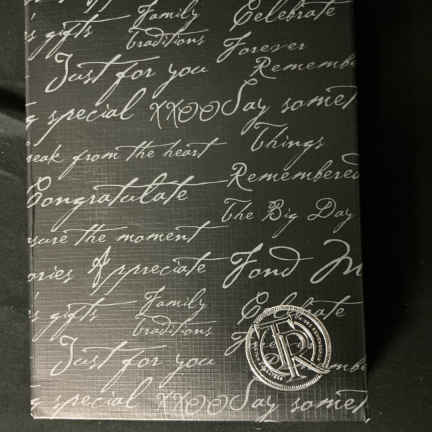 Family Celebrate
s gifts traditions Forever
Just for you Rememb
g special XXOO Say somet
Things
eak from the heart
Remembered
Congratulate
The Big Day
sure the moment
ories Appreciate Fond M
Family Celebrate
s gifts traditions
Just for you emb
g special XXOO Say somet
TR